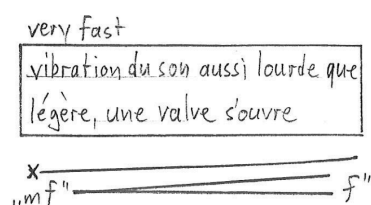 very fast
vibration du son aussi lourde que
légère, une valve s'ouvre
x
„mf" f"